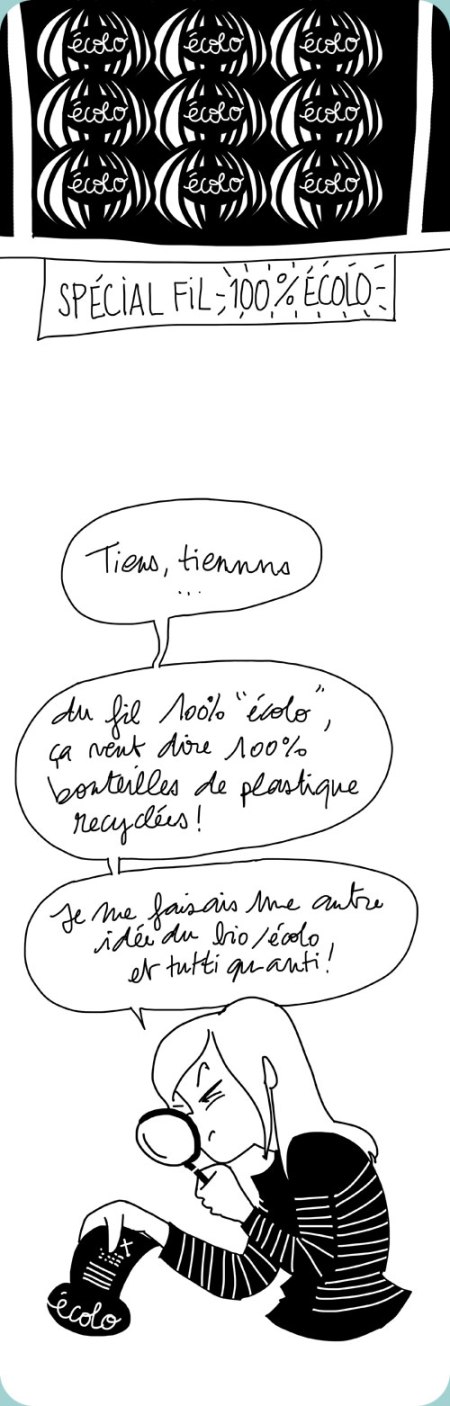 écolo écolo écolo
écolo écolo écolo
écolo écolo écolo
SPÉCIAL FIL 100% ÉCOLO
Tiens, tiennns
...
du fil 100% "écolo",
ça veut dire 100%
bouteilles de plastique
recyclées!
Je me faisais une autre
idée du bio/écolo
et tutti quanti!
écolo